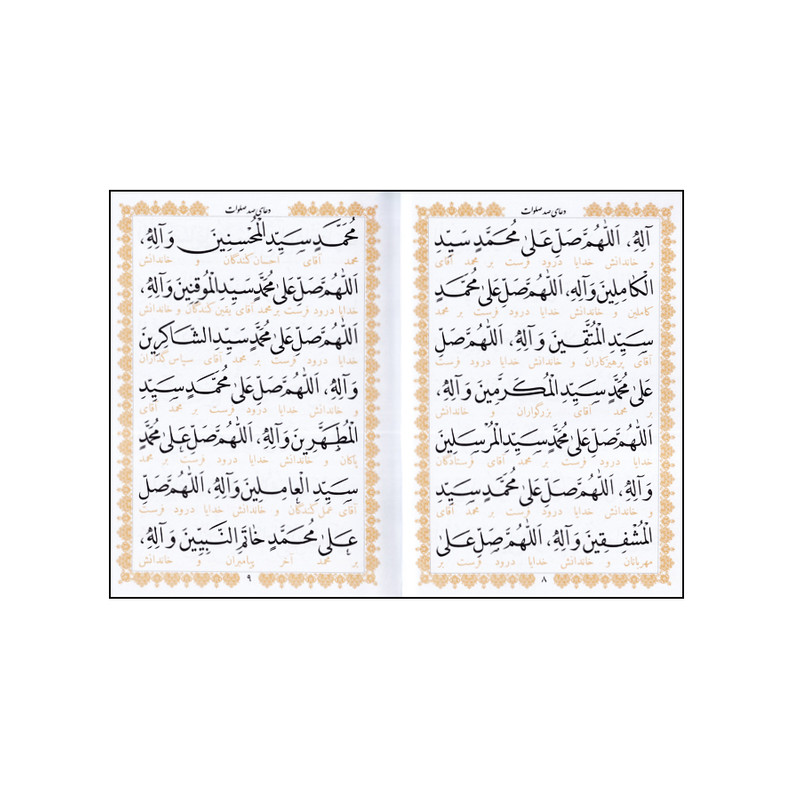 دعای صد صلوات
آلِهِ، اَللّٰهُمَّ صَلِّ عَلىٰ مُحَمَّدٍ سَيِّدِ
و خاندانش خدایا درود فرست بر محمد آقای
الْكٰامِلينَ وَآلِهِ، اَللّٰهُمَّ صَلِّ عَلىٰ مُحَمَّدٍ
کاملین و خاندانش خدایا درود فرست بر محمد
سَيِّدِ الْمُتَّقينَ وَ آلِهِ، اَللّٰهُمَّ صَلِّ
آقای پرهیزکاران و خاندانش خدایا درود فرست
عَلىٰ مُحَمَّدٍ سَيِّدِ الْمُكَرَّمينَ وَ آلِهِ،
بر محمد آقای بزرگواران و خاندانش
اَللّٰهُمَّ صَلِّ عَلىٰ مُحَمَّدٍ سَيِّدِ الْمُرْسَلينَ
خدایا درود فرست بر محمد آقای فرستادگان
وَ آلِهِ، اَللّٰهُمَّ صَلِّ عَلىٰ مُحَمَّدٍ سَيِّدِ
و خاندانش خدایا درود فرست بر محمد آقای
الْمُشْفِقينَ وَ آلِهِ، اَللّٰهُمَّ صَلِّ عَلىٰ
مهربانان و خاندانش خدایا درود فرست بر
۸
دعای صد صلوات
مُحَمَّدٍ سَيِّدِ الْمُحْسِنينَ وَ آلِهِ،
محمد آقای احسان کنندگان و خاندانش
اَللّٰهُمَّ صَلِّ عَلىٰ مُحَمَّدٍ سَيِّدِ الْمُوقِنينَ وَ آلِهِ،
خدایا درود فرست بر محمد آقای یقین کنندگان و خاندانش
اَللّٰهُمَّ صَلِّ عَلىٰ مُحَمَّدٍ سَيِّدِ الشّٰاكِرينَ
خدایا درود فرست بر محمد آقای سپاس گذاران
وَ آلِهِ، اَللّٰهُمَّ صَلِّ عَلىٰ مُحَمَّدٍ سَيِّدِ
و خاندانش خدایا درود فرست بر محمد آقای
الْمُطَهَّرينَ وَ آلِهِ، اَللّٰهُمَّ صَلِّ عَلىٰ مُحَمَّدٍ
پاکان و خاندانش خدایا درود فرست بر محمد
سَيِّدِ الْعٰامِلينَ وَ آلِهِ، اَللّٰهُمَّ صَلِّ
آقای عمل کنندگان و خاندانش خدایا درود فرست
عَلىٰ مُحَمَّدٍ خٰاتَمِ النَّبِيّينَ وَ آلِهِ،
بر محمد آخر پیامبران و خاندانش
۹